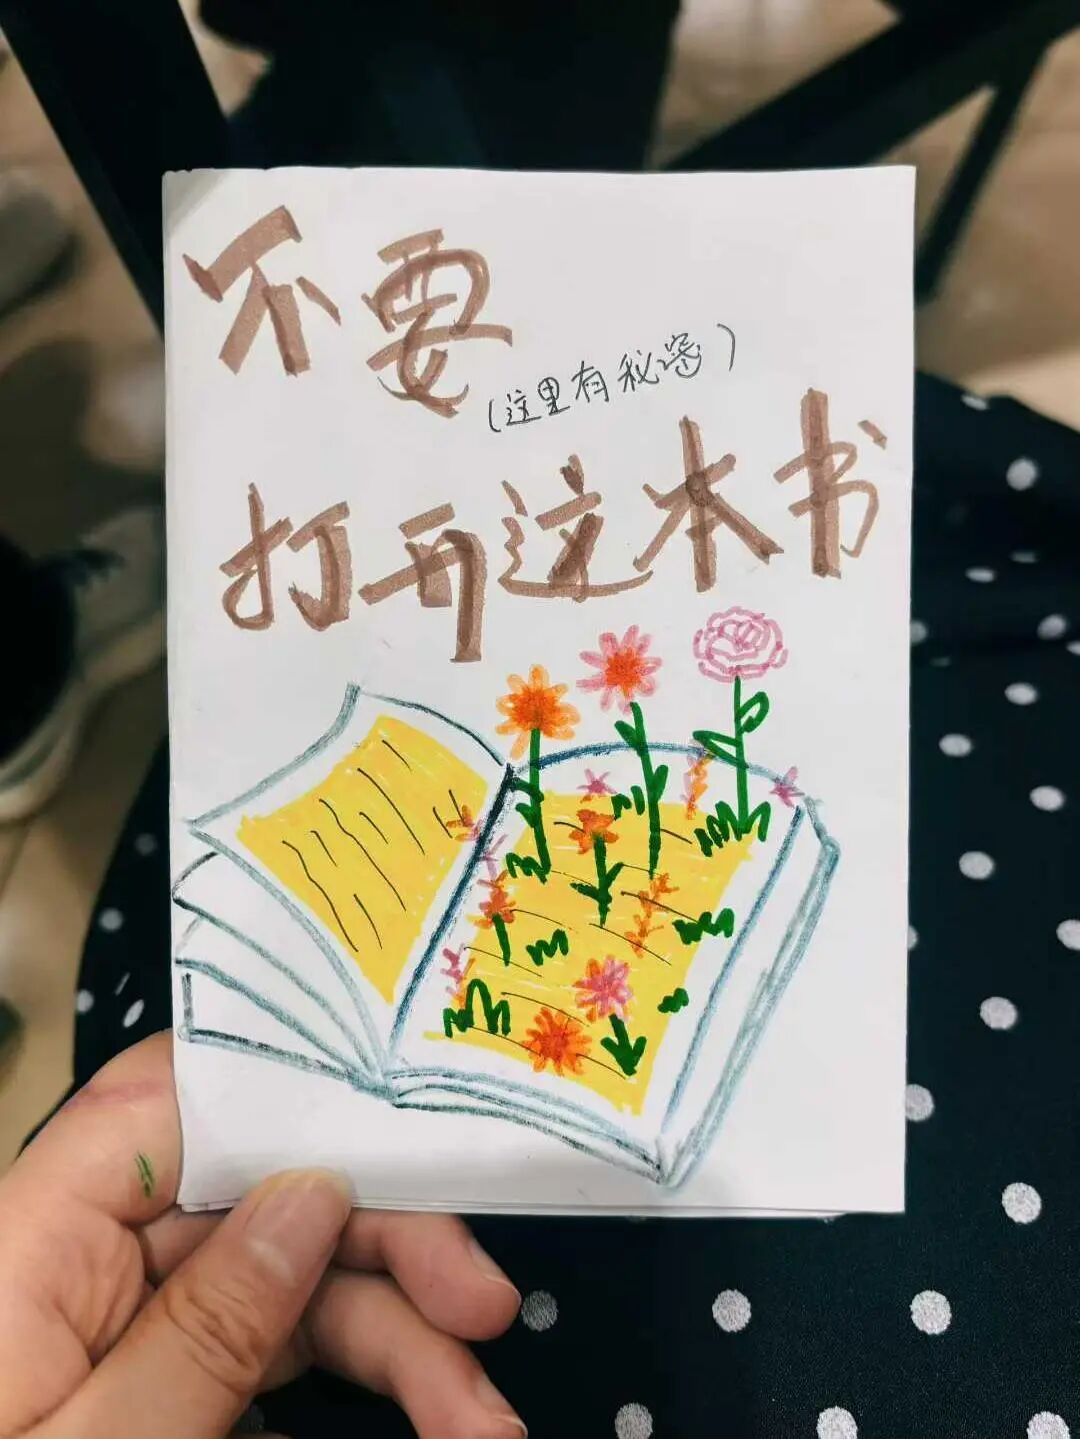 不要
(这里有秘密)
打开这本书